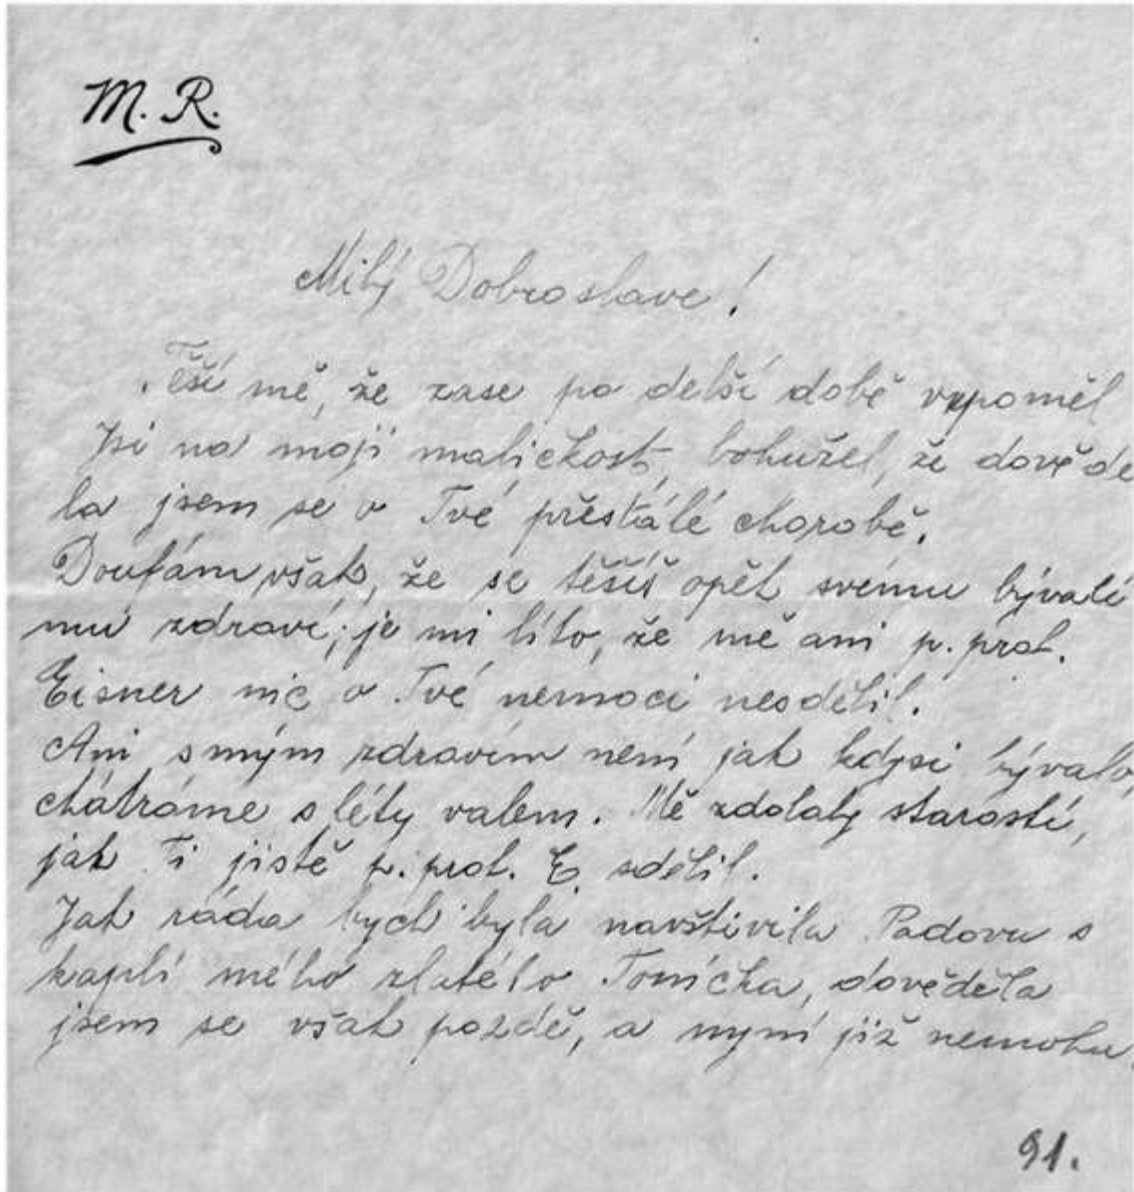 M. R.
Milý Dobroslave!
Těší mě, že zase po delší době vzpoměl
Jsi na moji maličkost, bohužel, že dověde
la jsem se o Tvé přestálé chorobě.
Doufám však, že se těšíš opět svému bývalé
mu zdraví; je mi líto, že mě ani p. prof.
Eisner nic o Tvé nemoci nesdělil.
Ani s mým zdravím není jak kdysi bývalo,
chátráme s léty valem. Mě zdolaly starosti,
jak Ti jistě p. prof. E. sdělil.
Jak ráda bych byla navštívila Padovu s
kaplí mého zlatého Toníčka, dověděla
jsem se však pozdě, a nyní již nemohu.
91.